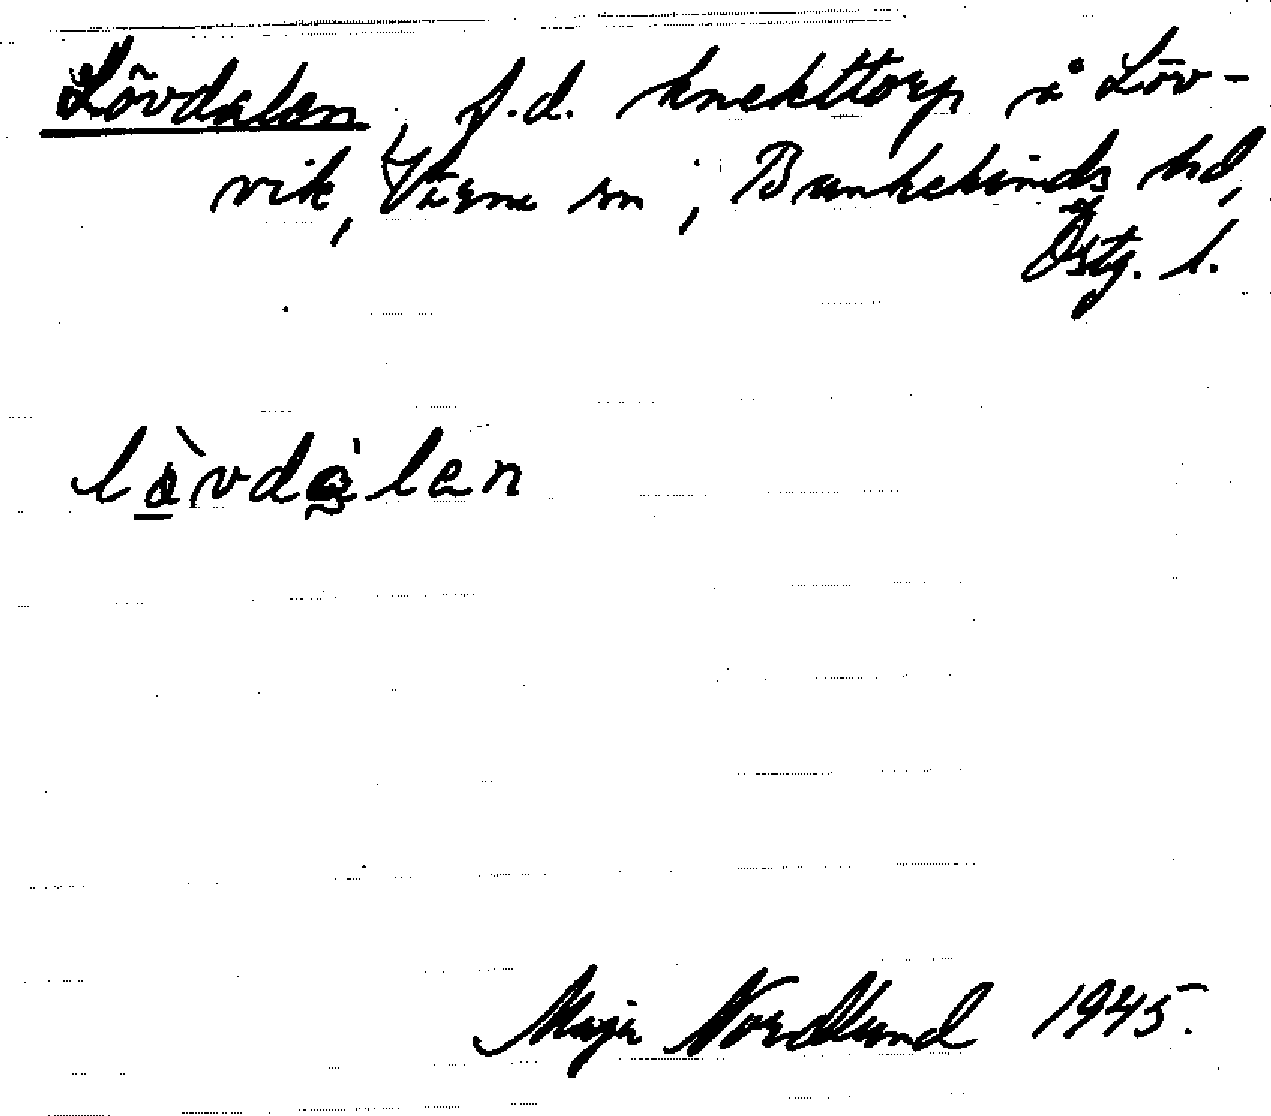 Lövdalen, f.d. knekttorp å Löv-
vik, Värna sn, Bankekinds hd,
Östg. l.
lòvdàlen
Maja Nordlund 1945.